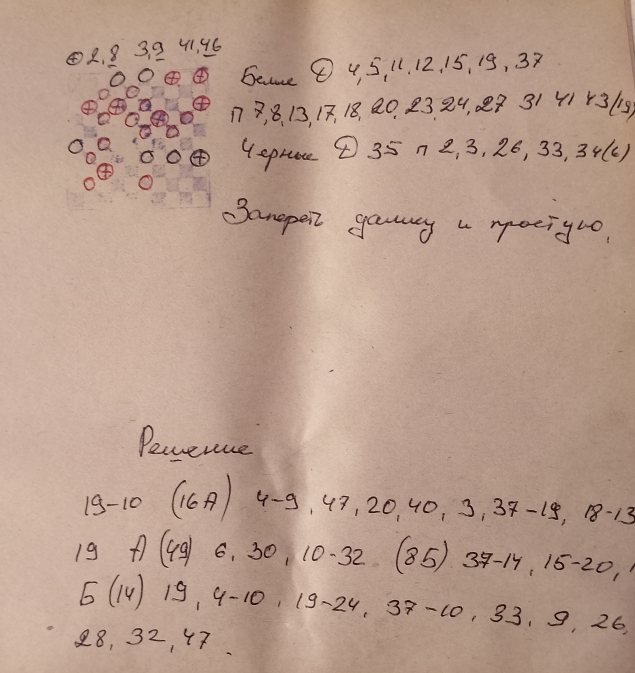 ⊕ 2,8 3,9 41,46
Белые Д 4,5,11,12,15,19,37
п 7,8,13,17,18,20,23,24,27 31 41 43(19)
Черные Д 35 п 2,3,26,33,34(6)
Запереть дамку и простую.
Решение
19-10 (16А) 4-9, 47, 20, 40, 3, 37-19, 18-13
19 А (49) 6, 30, 10-32 (8Б) 37-14, 15-20,
Б (14) 19, 4-10, 19-24, 37-10, 33, 9, 26,
28, 32, 47.